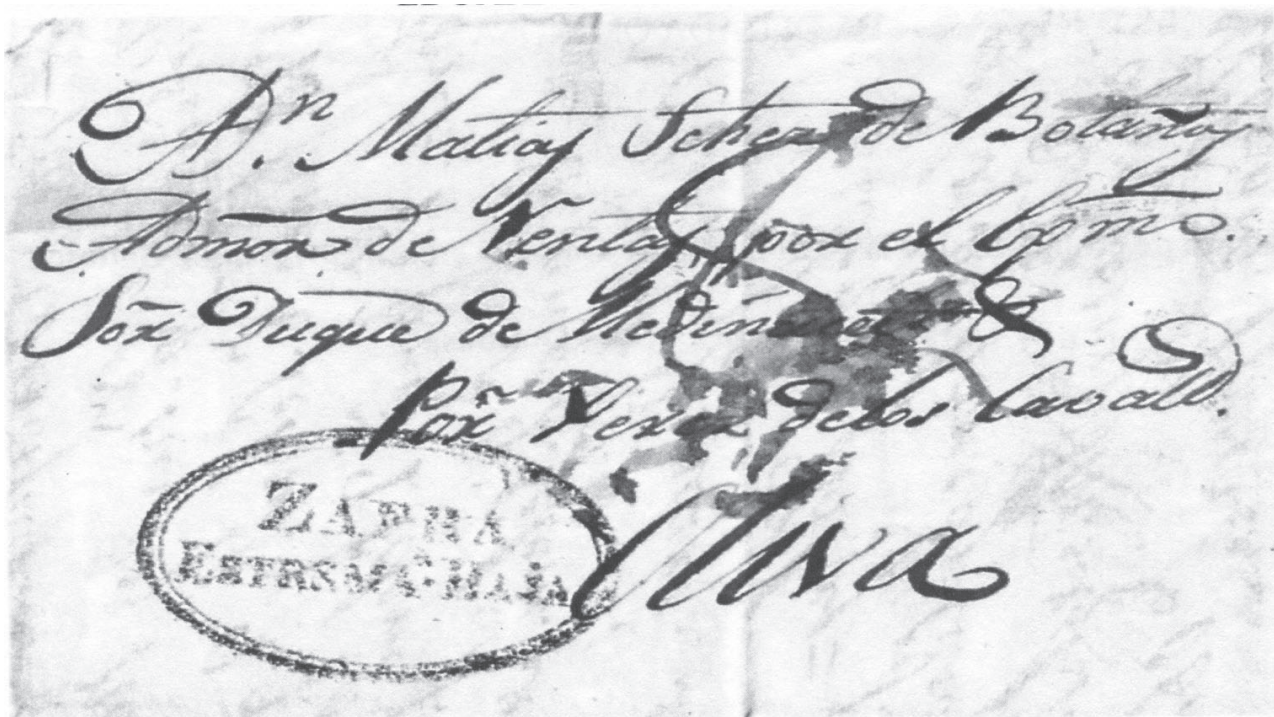 A Dn. Matias Schez de Bolaños
Admon. de Rentas por el Exmo.
Sōr Duque de Medinaceli &
Por Xerez de los Cavall.
Oliva
ZAFRA
ESTREMADURA BAJA